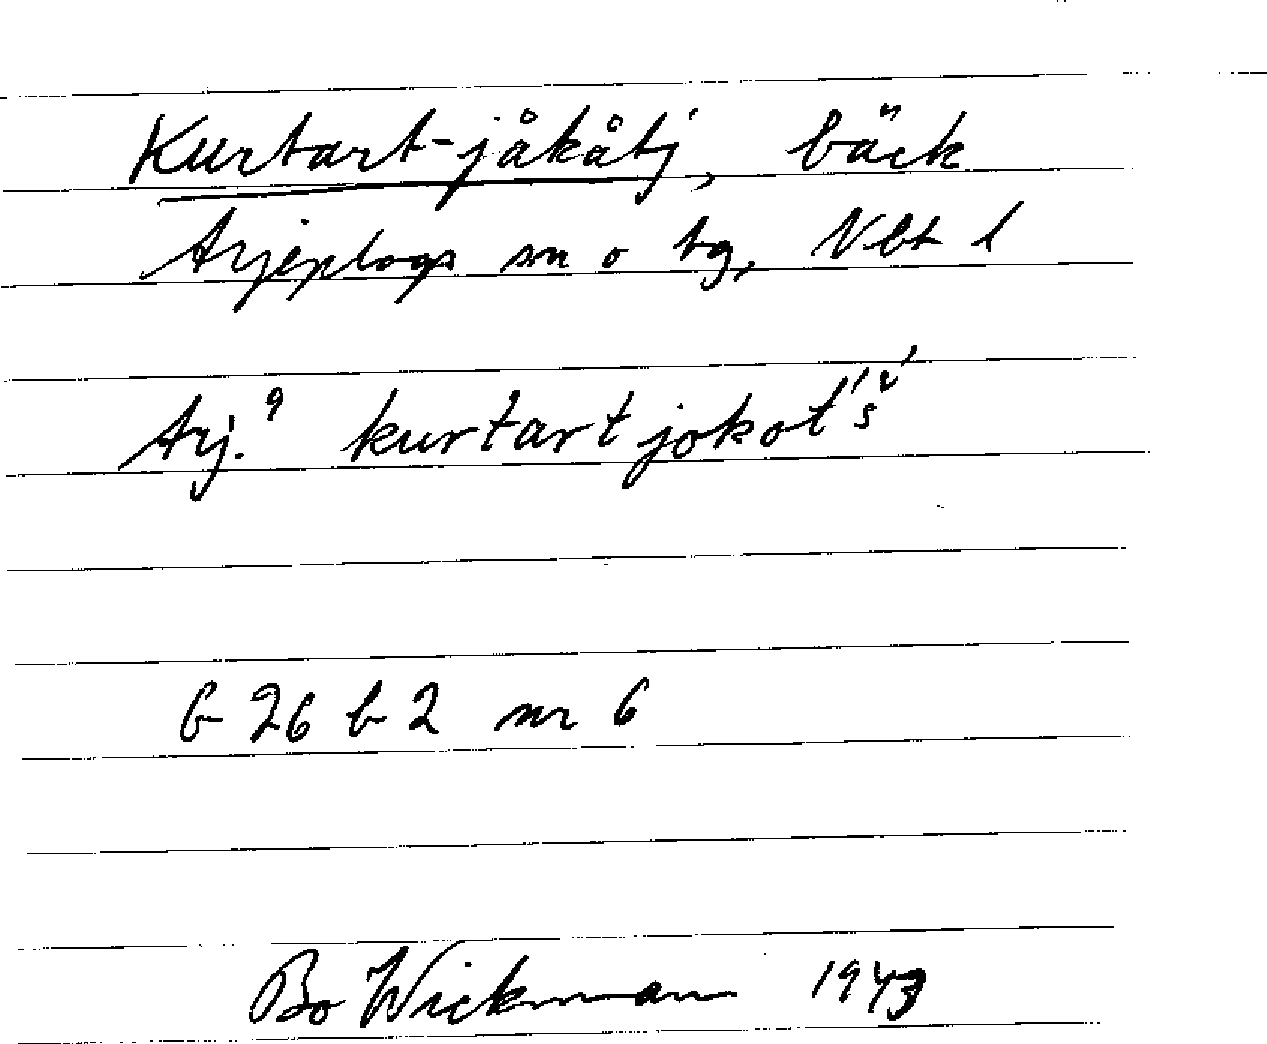 Kurtart-jåkåtj, bäck
Arjeplogs sn o tg, Vbt l
Arj.⁹ kurtart jokot́š́
b 26 b 2 nr 6
Bo Wickman 1943